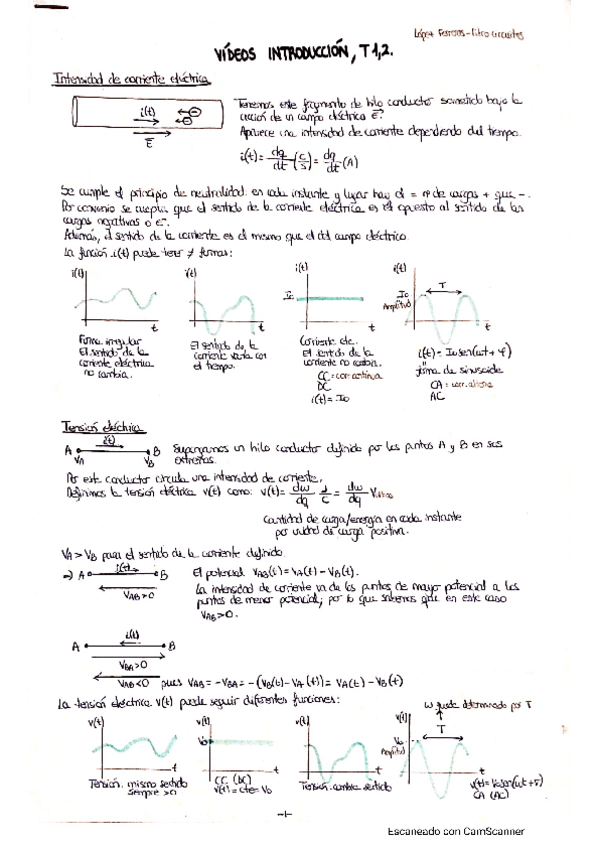 López Ferreras-Filtro Circuitos
VÍDEOS INTRODUCCIÓN, T1,2.
Intensidad de corriente eléctrica
i(t)
E
Tenemos este fragmento de hilo conductor sometido bajo la
acción de un campo eléctrico E.
Aparece una intensidad de corriente dependiendo del tiempo.
i(t) = dq/dt (C/s) = dq/dt (A)
Se cumple el principio de neutralidad: en cada instante y lugar hay el = nº de cargas + que -.
Por convenio se cumple que el sentido de la corriente eléctrica es el opuesto al sentido de las
cargas negativas o e-.
Además, el sentido de la corriente es el mismo que el del campo eléctrico.
La función i(t) puede tener ≠ formas:
i(t) i(t) i(t) i(t)
Io Io T
Amplitud
t t t t
Forma irregular
El sentido de la
corriente eléctrica
no cambia.
El sentido de la
corriente varía con
el tiempo.
Corriente cte.
El sentido de la
corriente no cambia.
CC = corr. continua
DC
i(t) = Io
i(t) = Io sen(ωt + φ)
forma de sinusoide
CA = corr. alterna
AC
Tensión eléctrica
i(t)
A B
VA VB
Supongamos un hilo conductor definido por los puntos A y B en sus
extremos.
Por este conductor circula una intensidad de corriente.
Definimos la tensión eléctrica v(t) como: v(t) = dw/dq J/C = dw/dq Voltios
Cantidad de carga/energía en cada instante
por unidad de carga positiva.
VA > VB para el sentido de la corriente definido.
=> A i(t) B
VAB > 0
El potencial VAB(t) = VA(t) - VB(t).
La intensidad de corriente va de los puntos de mayor potencial a los
puntos de menor potencial, por lo que sabemos que en este caso
VAB > 0.
A i(t) B
VBA > 0
VAB < 0 pues VAB = -VBA = -(VB(t) - VA(t)) = VA(t) - VB(t)
La tensión eléctrica v(t) puede seguir diferentes funciones:
ω queda determinado por T
v(t) v(t) v(t) v(t) T
Vo Vo
Amplitud
t t t t
Tensión. mismo sentido
siempre >0
CC (DC)
v(t) = cte = Vo
Tensión. cambia sentido
v(t) = Vo sen(ωt + δ)
CA (AC)
-1-
Escaneado con CamScanner